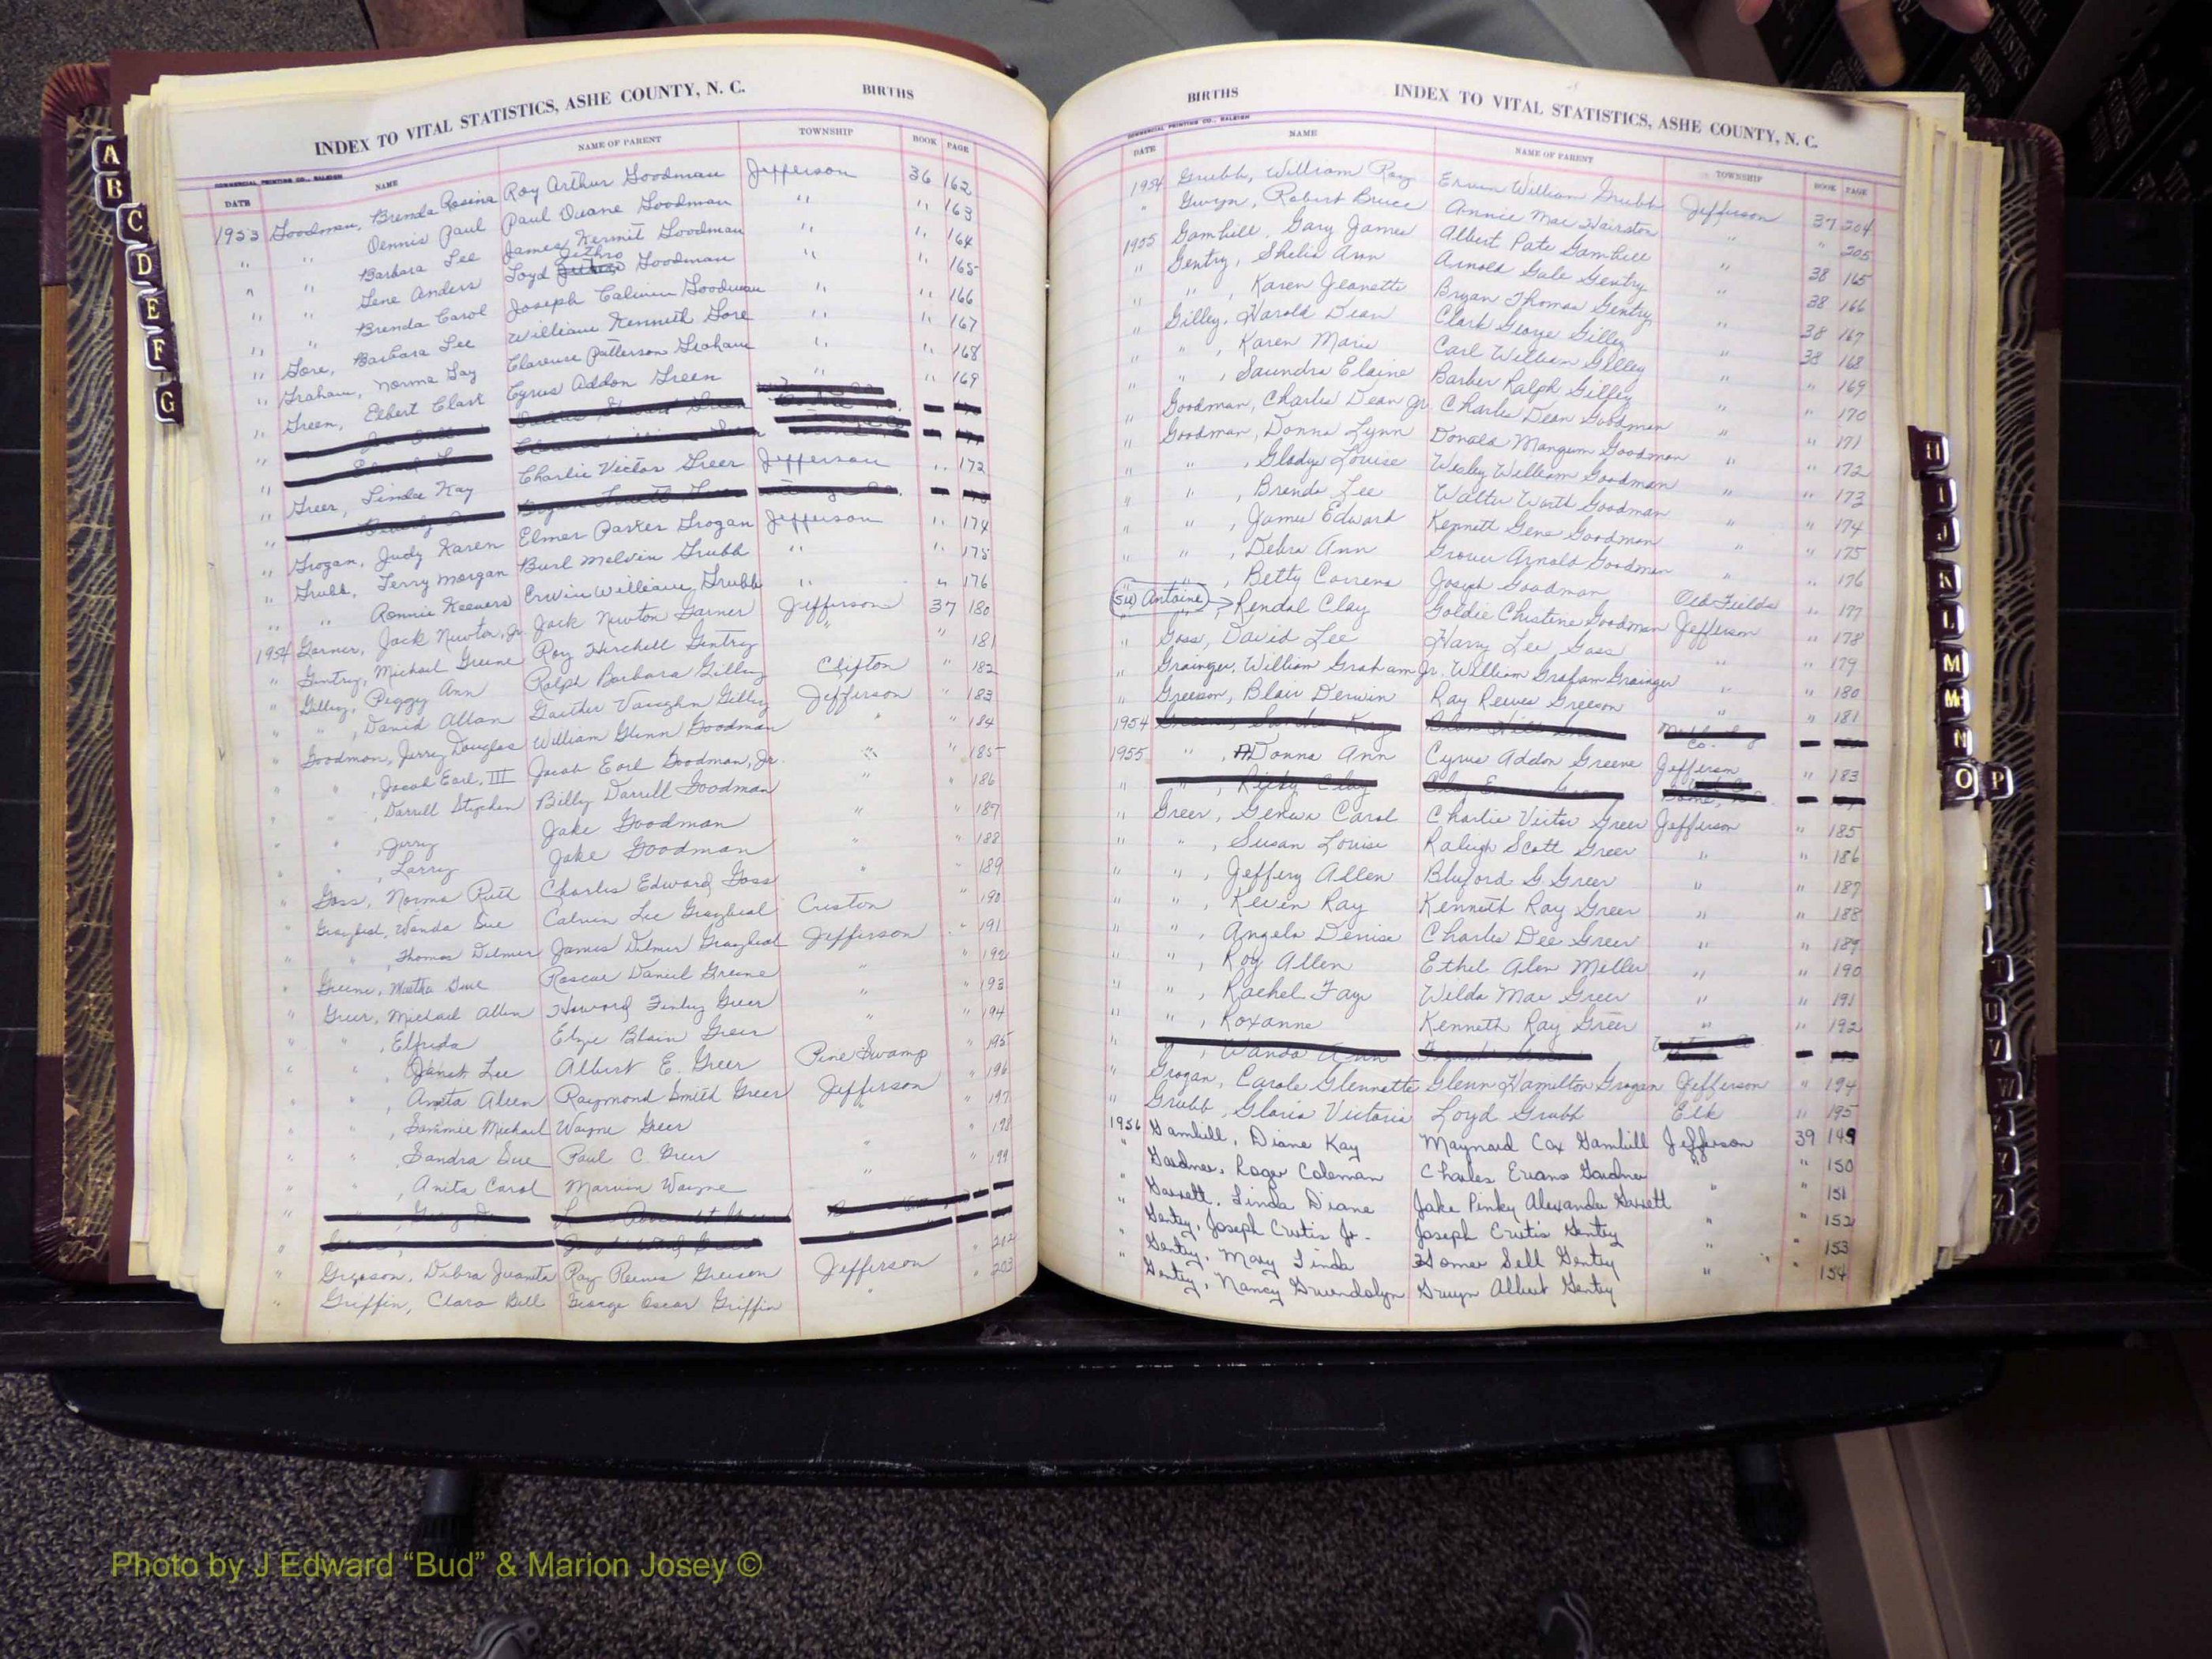 INDEX TO VITAL STATISTICS, ASHE COUNTY, N. C. BIRTHS
COMMERCIAL PRINTING CO., RALEIGH
DATE NAME NAME OF PARENT TOWNSHIP BOOK PAGE
1953 Goodman, Brenda Rosina Roy Arthur Goodman Jefferson 36 162
" " Dennis Paul Paul Duane Goodman " " 163
" " Barbara Lee James Kermit Goodman " " 164
" " Gene Anders Loyd Jethro Goodman " " 165
" " Brenda Carol Joseph Calvin Goodman " " 166
" Gore, Barbara Lee William Kenneth Gore " " 167
" Graham, Norma Gay Clarence Patterson Graham " " 168
" Green, Elbert Clark Cyrus Addon Green " " 169
" Greer, Linda Kay Charlie Victor Greer Jefferson " 172
" Grogan, Judy Karen Elmer Parker Grogan Jefferson " 174
" Grubb, Terry Morgan Burl Melvin Grubb " " 175
" " Ronnie Keevers Erwin William Grubb " " 176
1954 Garner, Jack Newton, Jr. Jack Newton Garner Jefferson 37 180
" Gentry, Michael Greene Roy Hirchell Gentry " " 181
" Gilley, Peggy Ann Ralph Barbara Gilley Clifton " 182
" " , David Allan Gaither Vaughn Gilley Jefferson " 183
" Goodman, Jerry Douglas William Glenn Goodman " " 184
" " , Jacob Earl, III Jacob Earl Goodman, Jr. " " 185
" " , Darrell Stephen Billy Darrell Goodman " " 186
" " , Jerry Jake Goodman " " 187
" " , Larry Jake Goodman " " 188
" Goss, Norma Ruth Charles Edward Goss " " 189
" Graybeal, Wanda Sue Calvin Lee Graybeal Creston " 190
" " , Thomas Dilmer James Dilmer Graybeal Jefferson " 191
" Greene, Martha Sue Roscoe Daniel Greene " " 192
" Greer, Michael Allen Howard Finley Greer " " 193
" " , Elfreda Blain Greer " " 194
" " , Janet Lee Albert E. Greer Pine Swamp " 195
" " , Anita Aleen Raymond Smith Greer Jefferson " 196
" " , Sammie Michael Wayne Greer " " 197
" " , Sandra Sue Paul C. Greer " " 198
" " , Anita Carol Marvin Wayne " " 199
" Greeson, Debra Juanita Ray Reeves Greeson Jefferson " 202
" Griffin, Clara Bell George Oscar Griffin " " 203
BIRTHS INDEX TO VITAL STATISTICS, ASHE COUNTY, N. C.
COMMERCIAL PRINTING CO., RALEIGH
DATE NAME NAME OF PARENT TOWNSHIP BOOK PAGE
1954 Grubb, William Roy Ervin William Grubb Jefferson 37 204
" Gwyn, Robert Bruce Annie Mae Hairston " " 205
1955 Gambill, Gary James Albert Pate Gambill " 38 165
" Gentry, Shelia Ann Arnold Gale Gentry " 38 166
" " , Karen Jeanette Bryan Thomas Gentry " 38 167
" Gilley, Harold Dean Clark George Gilley " 38 168
" " , Karen Marie Carl William Gilley " " 169
" " , Saundra Elaine Barber Ralph Gilley " " 170
" Goodman, Charles Dean Jr. Charles Dean Goodman " " 171
" Goodman, Donna Lynn Donald Mangum Goodman " " 172
" " , Gladys Louise Wesley William Goodman " " 173
" " , Brenda Lee Walter Worth Goodman " " 174
" " , James Edward Kenneth Gene Goodman " " 175
" " , Debra Ann Grover Arnold Goodman " " 176
" " , Betty Correna Joseph Goodman Old Fields " 177
(SU) Antoine → Rendal Clay Goldie Christine Goodman Jefferson " 178
" Goss, David Lee Harry Lee Goss " " 179
" Grainger, William Graham Jr. William Graham Grainger " " 180
" Greeson, Blair Derwin Ray Reeves Greeson " " 181
1954
1955 " , Donna Ann Cyrus Addon Greene Jefferson " 183
" " , Ricky Clay
" Greer, Geneva Carol Charlie Victor Greer Jefferson " 185
" " , Susan Louise Raleigh Scott Greer " " 186
" " , Jeffery Allen Bluford G. Greer " " 187
" " , Keven Ray Kenneth Ray Greer " " 188
" " , Angela Denise Charles Dee Greer " " 189
" " , Roy Allen Ethel Alen Miller " " 190
" " , Rachel Faye Wilda Mae Greer " " 191
" " , Roxanne Kenneth Ray Greer " " 192
" " , Wanda Ann
" Grogan, Carole Glennette Glenn Hamilton Grogan Jefferson " 194
" Grubb, Gloria Victoria Loyd Grubb Elk " 195
1956 Gambill, Diane Kay Maynard Cox Gambill Jefferson 39 149
" Gardner, Roger Coleman Charles Evans Gardner " " 150
" Garrett, Linda Diane Jake Pinky Alexander Garrett " " 151
" Gentry, Joseph Curtis Jr. Joseph Curtis Gentry " " 152
" Gentry, Mary Linda Homer Sell Gentry " " 153
" Gentry, Nancy Gwendolyn Gwyn Albert Gentry " " 154
A
B
C
D
E
F
G
H
I
J
K
L
M
Mc
N
O P
T
U
V
W
Photo by J Edward “Bud” & Marion Josey ©